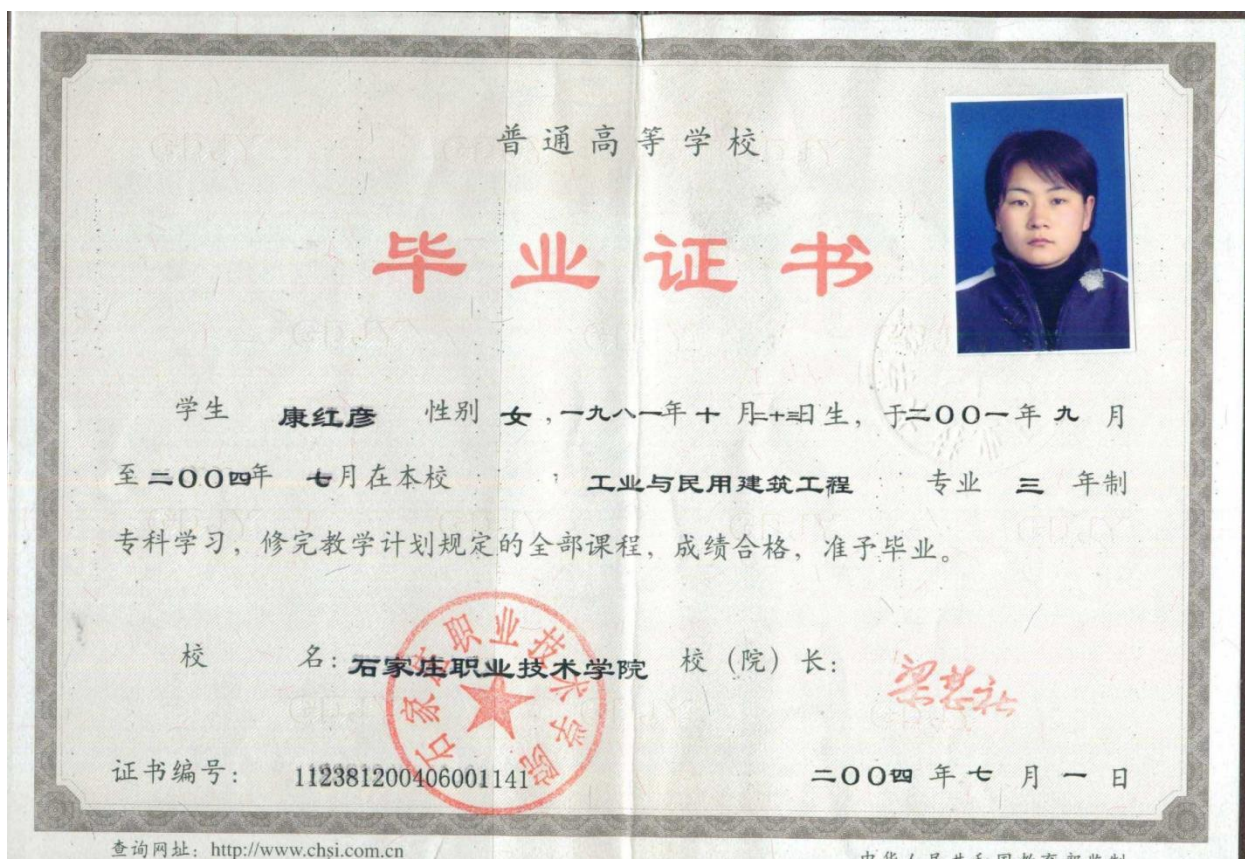 普通高等学校
毕业证书
学生 康红彦 性别 女，一九八一年十月二十三日生，于二〇〇一年九月
至二〇〇四年 七月在本校 工业与民用建筑工程 专业 三 年制
专科学习，修完教学计划规定的全部课程，成绩合格，准予毕业。
校 名：石家庄职业技术学院 校（院）长：
石家庄职业技术学院
证书编号：112381200406001141 二〇〇四年七月一日
查询网址：http://www.chsi.com.cn 中华人民共和国教育部监制